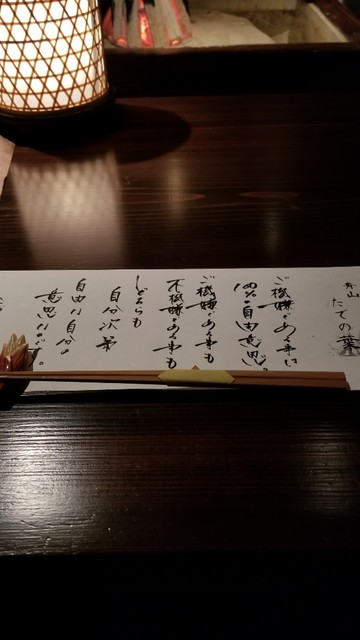 青山
たての葉
ご機嫌である事は
100%自由意思だ。
ご機嫌である事も
不機嫌である事も
どちらも
自分次第
自由な自分の
意思なのだ。